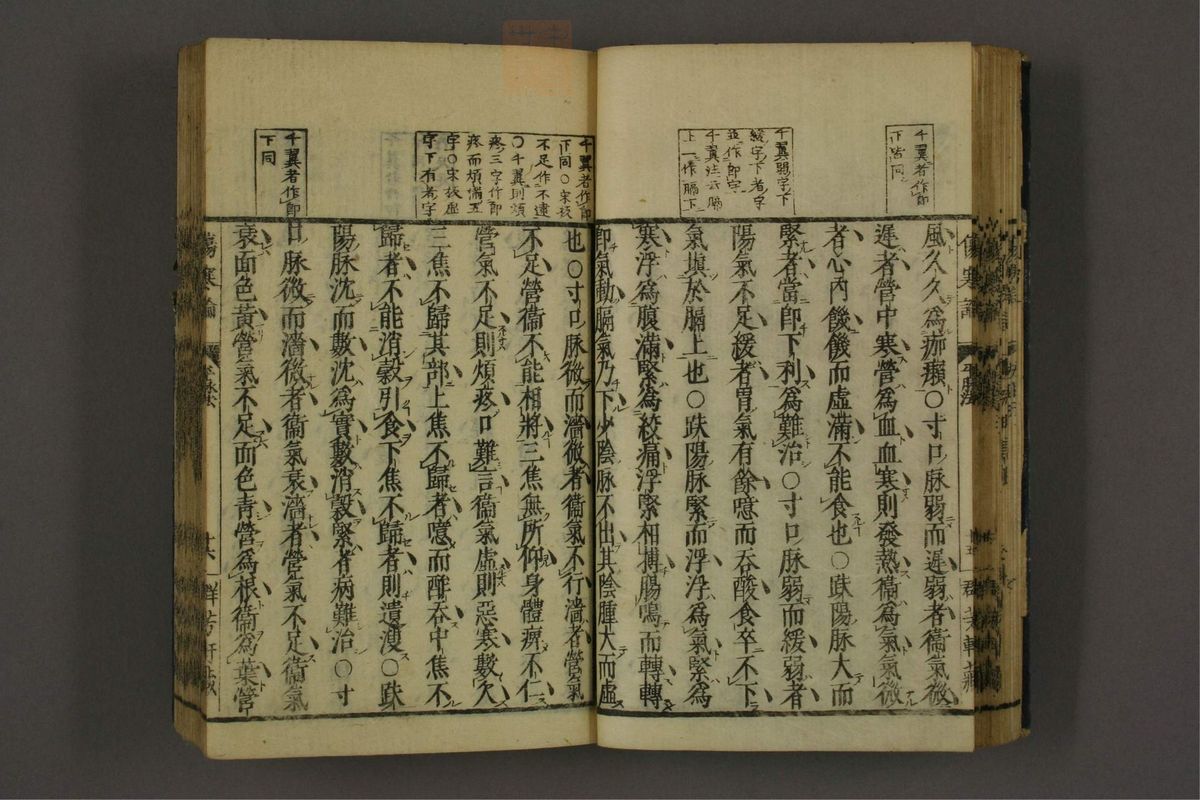 千翼者作即
下皆同
千翼弱字下
緩字下者字
並作即字
千翼注云膈
上一作膈下
風久久爲痂癩○寸口脉弱而遲弱者衞氣微
遲者營中寒營爲血血寒則發熱衞爲氣氣微
者心內饑饑而虛滿不能食也○趺陽脉大而
緊者當即下利爲難治○寸口脉弱而緩弱者
陽氣不足緩者胃氣有餘噫而吞酸食卒不下
氣塡於膈上也○趺陽脉緊而浮浮爲氣緊爲
寒浮爲腹滿緊爲絞痛浮緊相搏腸鳴而轉轉
即氣動膈氣乃下少陰脉不出其陰腫大而虛
千翼者作即
下同○宋板
不足作不逮
○千翼則煩
疼三字作即
疼而煩滿五
字○宋板虛
字下有者字
千翼者作即
下同
也○寸口脉微而濇微者衞氣不行濇者營氣
不足營衞不能相將三焦無所仰身體痹不仁
營氣不足則煩疼口難言衞氣虛則惡寒數欠
三焦不歸其部上焦不歸者噫而酢吞中焦不
歸者不能消穀引食下焦不歸者則遺溲○趺
陽脉沈而數沈爲實數消穀緊者病難治○寸
口脉微而濇微者衞氣衰濇者營氣不足衞氣
衰面色黃營氣不足面色青營爲根衞爲葉營
傷寒論
平脉法